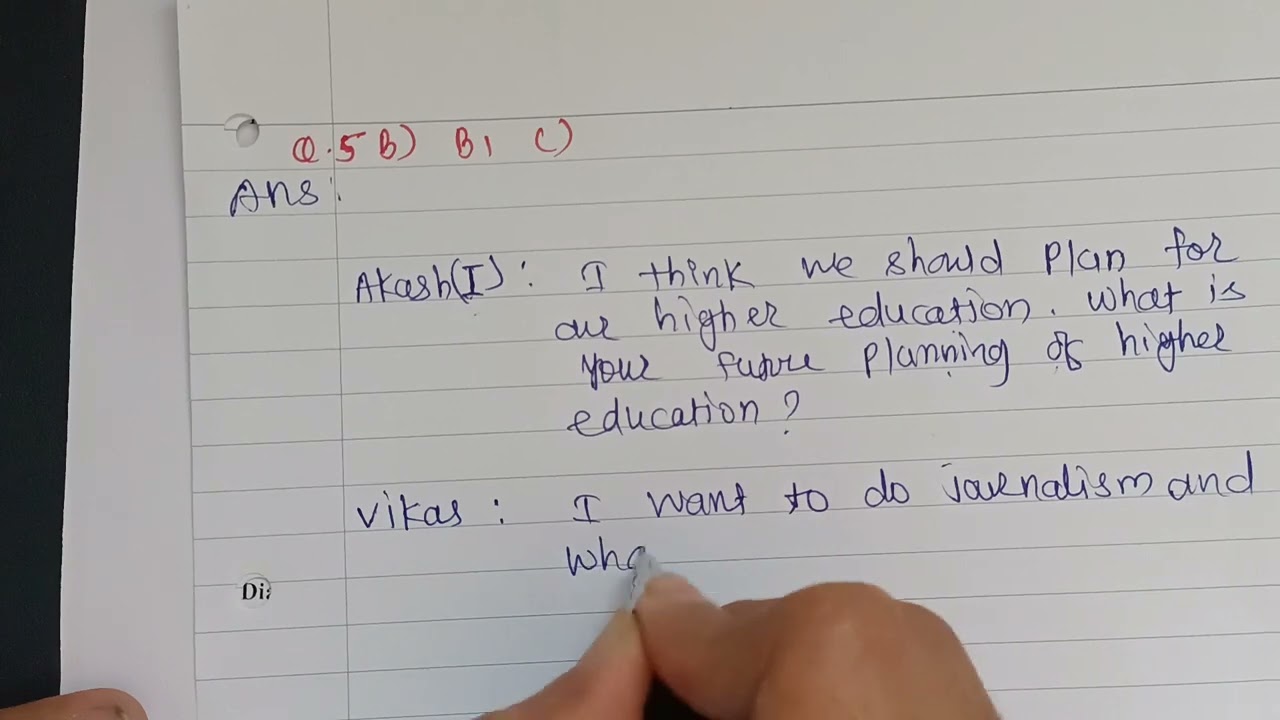 Q.5 B) B1 C)
Ans:
Akash(I): I think we should plan for
our higher education. What is
your future planning of higher
education?
Vikas: I want to do journalism and
wha
Di?